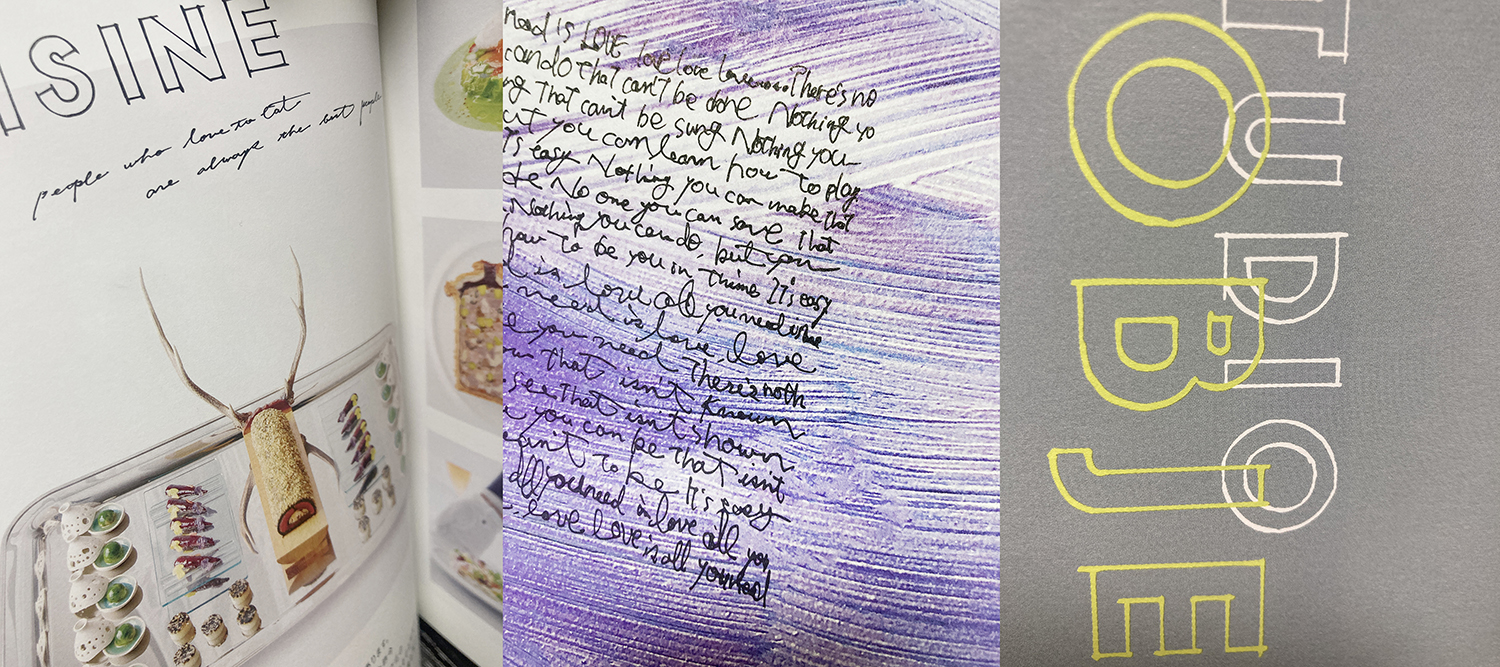 ISINE
people who love to eat
are always the best people
need is LOVE love love love.... There's no
can do that can't be done Nothing yo
ng That can't be sung Nothing you
ut you can learn how to play
Is easy Nothing you can make that
de No one you can save that
Nothing you can do, but you
how to be you in time It's easy
d is love all you need is love
need is love, love
e you need There's noth
ow that isn't known
see that isn't shown
e you can be that isn't
ean't to be It's easy
all you need is love all you
love love is all you need
TUDIO
OBJE